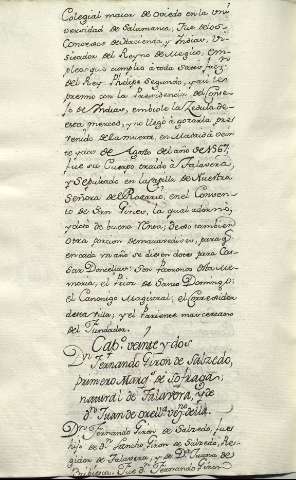 Colegial maior de Oviedo en la Uni
versidad de Salamanca, Fue de los
Consejos de Hacienda, y Indias, Vi-
sitador del Reyno de Megico, em-
pleos que cumplio à toda satisfaz.n
del Rey Phelipe Segundo, y assi le
premio con la Presidencia del Conse
jo de Indias, embiole la Zedula de
esta merced, y no llegò à gozarla, pre
venido de la muerte, en Madrid à ocho
de Agosto del año de 1567,
fue su Cuerpo traido à Talavera,
y Sepultado en la Capilla de Nuestra
Señora del Rosario, en el Conven
to de San Gines, la qual adornò,
y doto de buena renta; Dexo tambien
otra porcion de maravedises, para q
en cada un año se diesen dotes para Ca-
sar Doncellas: Son Patronos de la Me-
moria, el Prior de Santo Domingo,
el Canonigo Magistral, el Corregidor
desta villa, y el Pariente mas cercano
del Fundador.
Cap.o veinte y dos
D.n Fernando Giron de Salzedo,
primero Marq.s de Sofraga
natural de Talavera, y de
d.n Juan de Orellana
Don Fernando Giron de Salzedo, fue
hijo de D.n Sancho Giron de Salzedo, Re-
gidor de Talavera, y de D.a Juana de
Bribiesca. Fue d.n Fernando Giron